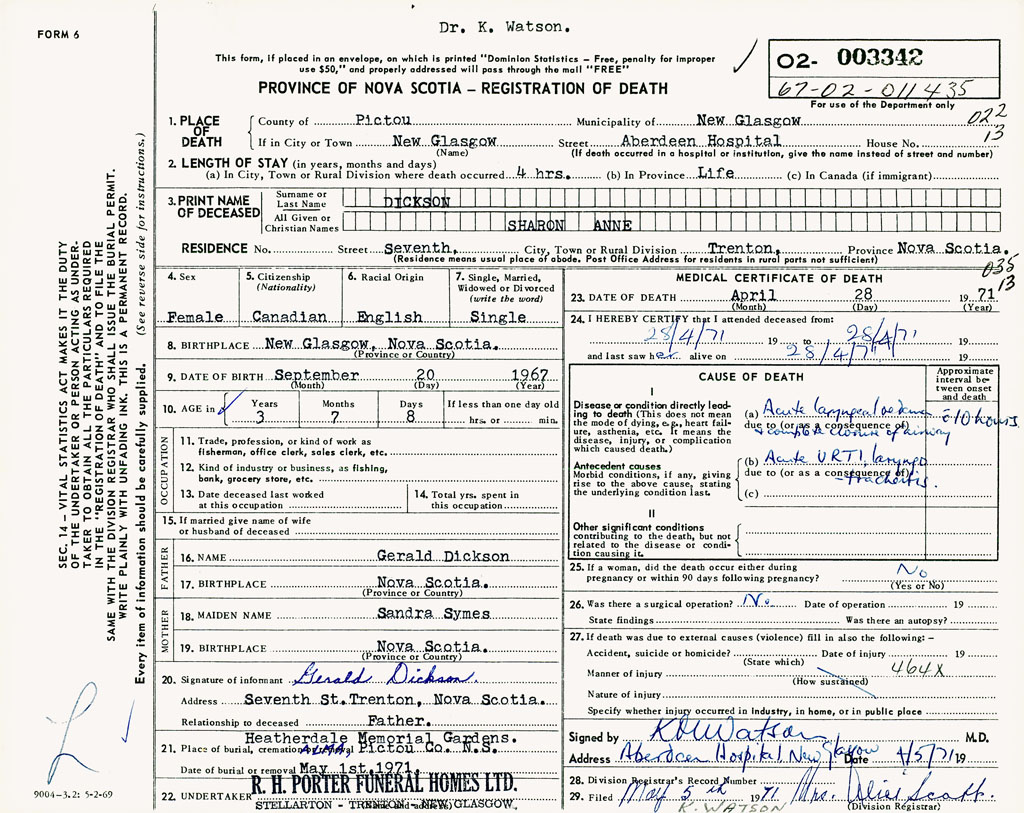 Dr. K. Watson.
FORM 6
This form, if placed in an envelope, on which is printed "Dominion Statistics – Free, penalty for improper
use $50," and properly addressed will pass through the mail "FREE"
PROVINCE OF NOVA SCOTIA – REGISTRATION OF DEATH
O2- 003342
67-02-011435
For use of the Department only
022
13
1. PLACE OF DEATH
County of Pictou Municipality of New Glasgow
If in City or Town New Glasgow Street Aberdeen Hospital House No.
(Name) (If death occurred in a hospital or institution, give the name instead of street and number)
2. LENGTH OF STAY (in years, months and days)
(a) In City, Town or Rural Division where death occurred 4 hrs. (b) In Province Life (c) In Canada (if immigrant)
3. PRINT NAME OF DECEASED
Surname or Last Name DICKSON
All Given or Christian Names SHARON ANNE
RESIDENCE No. Street Seventh, City, Town or Rural Division Trenton, Province Nova Scotia.
(Residence means usual place of abode. Post Office Address for residents in rural parts not sufficient)
035
13
4. Sex
Female
5. Citizenship
(Nationality)
Canadian
6. Racial Origin
English
7. Single, Married,
Widowed or Divorced
(write the word)
Single
8. BIRTHPLACE New Glasgow, Nova Scotia.
(Province or Country)
9. DATE OF BIRTH September 20 1967
(Month) (Day) (Year)
10. AGE in Years Months Days If less than one day old
3 7 8 hrs. or min.
OCCUPATION
11. Trade, profession, or kind of work as
fisherman, office clerk, sales clerk, etc.
12. Kind of industry or business, as fishing,
bank, grocery store, etc.
13. Date deceased last worked
at this occupation
14. Total yrs. spent in
this occupation
15. If married give name of wife
or husband of deceased
FATHER
16. NAME Gerald Dickson
17. BIRTHPLACE Nova Scotia.
(Province or Country)
MOTHER
18. MAIDEN NAME Sandra Symes
19. BIRTHPLACE Nova Scotia.
(Province or Country)
20. Signature of informant Gerald Dickson.
Address Seventh St. Trenton, Nova Scotia.
Relationship to deceased Father.
Heatherdale Memorial Gardens.
21. Place of burial, cremation Pictou Co. N.S.
Date of burial or removal May 1st, 1971
22. UNDERTAKER R. H. PORTER FUNERAL HOMES LTD.
STELLARTON - TRENTON - NEW GLASGOW,
MEDICAL CERTIFICATE OF DEATH
23. DATE OF DEATH April 28 1971
(Month) (Day) (Year)
24. I HEREBY CERTIFY that I attended deceased from:
28/4/71 19 to 28/4/71 19
and last saw her alive on 28/4/71 19
CAUSE OF DEATH
Approximate
interval be-
tween onset
and death
I
Disease or condition directly lead-
ing to death (This does not mean
the mode of dying, e.g., heart fail-
ure, asthenia, etc. It means the
disease, injury, or complication
which caused death.)
(a) Acute laryngeal oedema
due to (or as a consequence of)
+ complete closure of airway
10 hours.
Antecedent causes
Morbid conditions, if any, giving
rise to the above cause, stating
the underlying condition last.
(b) Acute URTI, laryngo
due to (or as a consequence of)
- tracheitis.
(c)
II
Other significant conditions
contributing to the death, but not
related to the disease or condi-
tion causing it.
25. If a woman, did the death occur either during
pregnancy or within 90 days following pregnancy? No
(Yes or No)
26. Was there a surgical operation? No Date of operation 19
State findings Was there an autopsy?
27. If death was due to external causes (violence) fill in also the following: –
Accident, suicide or homicide? Date of injury 19
(State which)
Manner of injury 464X
(How sustained)
Nature of injury
Specify whether injury occurred in industry, in home, or in public place
Signed by K M Watson M.D.
Address Aberdeen Hospital New Glasgow Date 4/5/71 19
28. Division Registrar's Record Number
29. Filed May 5th 1971 Mrs. Alice Scott.
K. WATSON (Division Registrar)
SEC. 14 – VITAL STATISTICS ACT MAKES IT THE DUTY
OF THE UNDERTAKER OR PERSON ACTING AS UNDER-
TAKER TO OBTAIN ALL THE PARTICULARS REQUIRED
IN THE "REGISTRATION OF DEATH" AND TO FILE THE
SAME WITH THE DIVISION REGISTRAR WHO SHALL ISSUE THE BURIAL PERMIT.
WRITE PLAINLY WITH UNFADING INK. THIS IS A PERMANENT RECORD.
Every item of information should be carefully supplied. (See reverse side for instructions.)
9004-3.2: 5-2-69